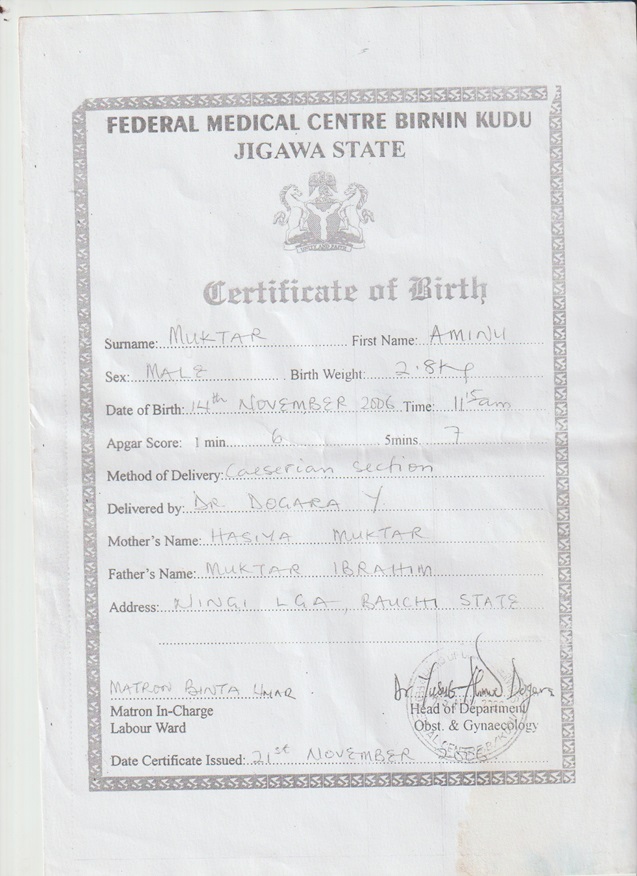 FEDERAL MEDICAL CENTRE BIRNIN KUDU
JIGAWA STATE
Certificate of Birth
Surname: MUKTAR First Name: AMINU
Sex: MALE Birth Weight: 2.8kg
Date of Birth: 14th NOVEMBER 2006 Time: 11:15am
Apgar Score: 1 min. 6 5mins. 7
Method of Delivery: Caeserian section
Delivered by: DR DOGARA Y
Mother's Name: HASIYA MUKTAR
Father's Name: MUKTAR IBRAHIM
Address: NINGI LGA, BAUCHI STATE
MATRON BINTA UMAR Dr. Yusuf Dogara
Matron In-Charge Head of Department
Labour Ward Obst. & Gynaecology
Date Certificate Issued: 21st NOVEMBER 2006